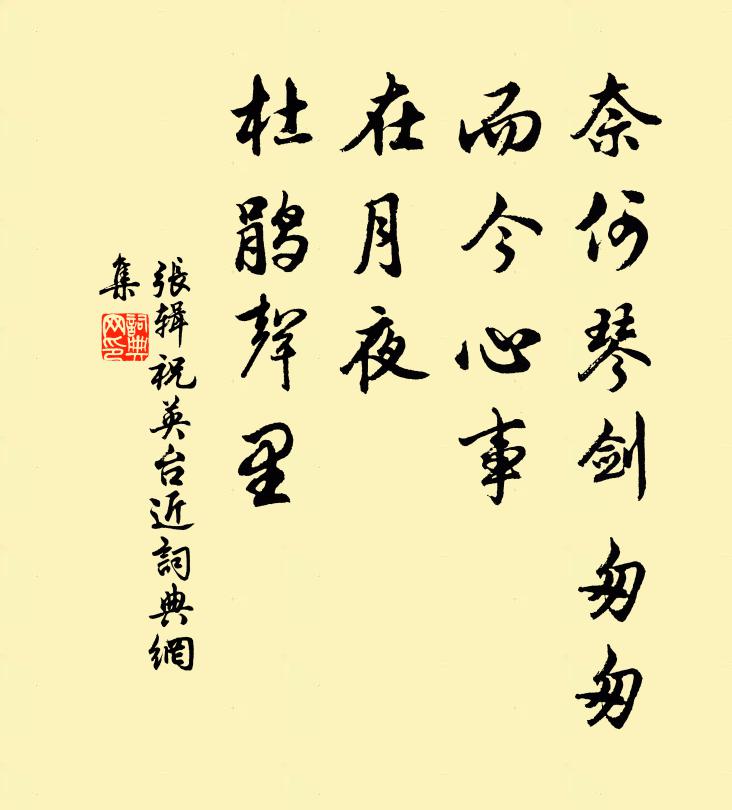 奈何琴剑匆匆
而今心事
在月夜
杜鹃聲里
張辑祝英台近詞典網
集
詞典
网印